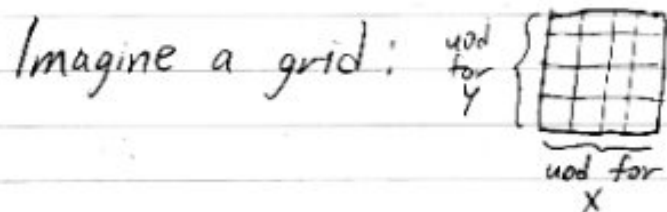 Imagine a grid:
uod
for
y
uod for
x